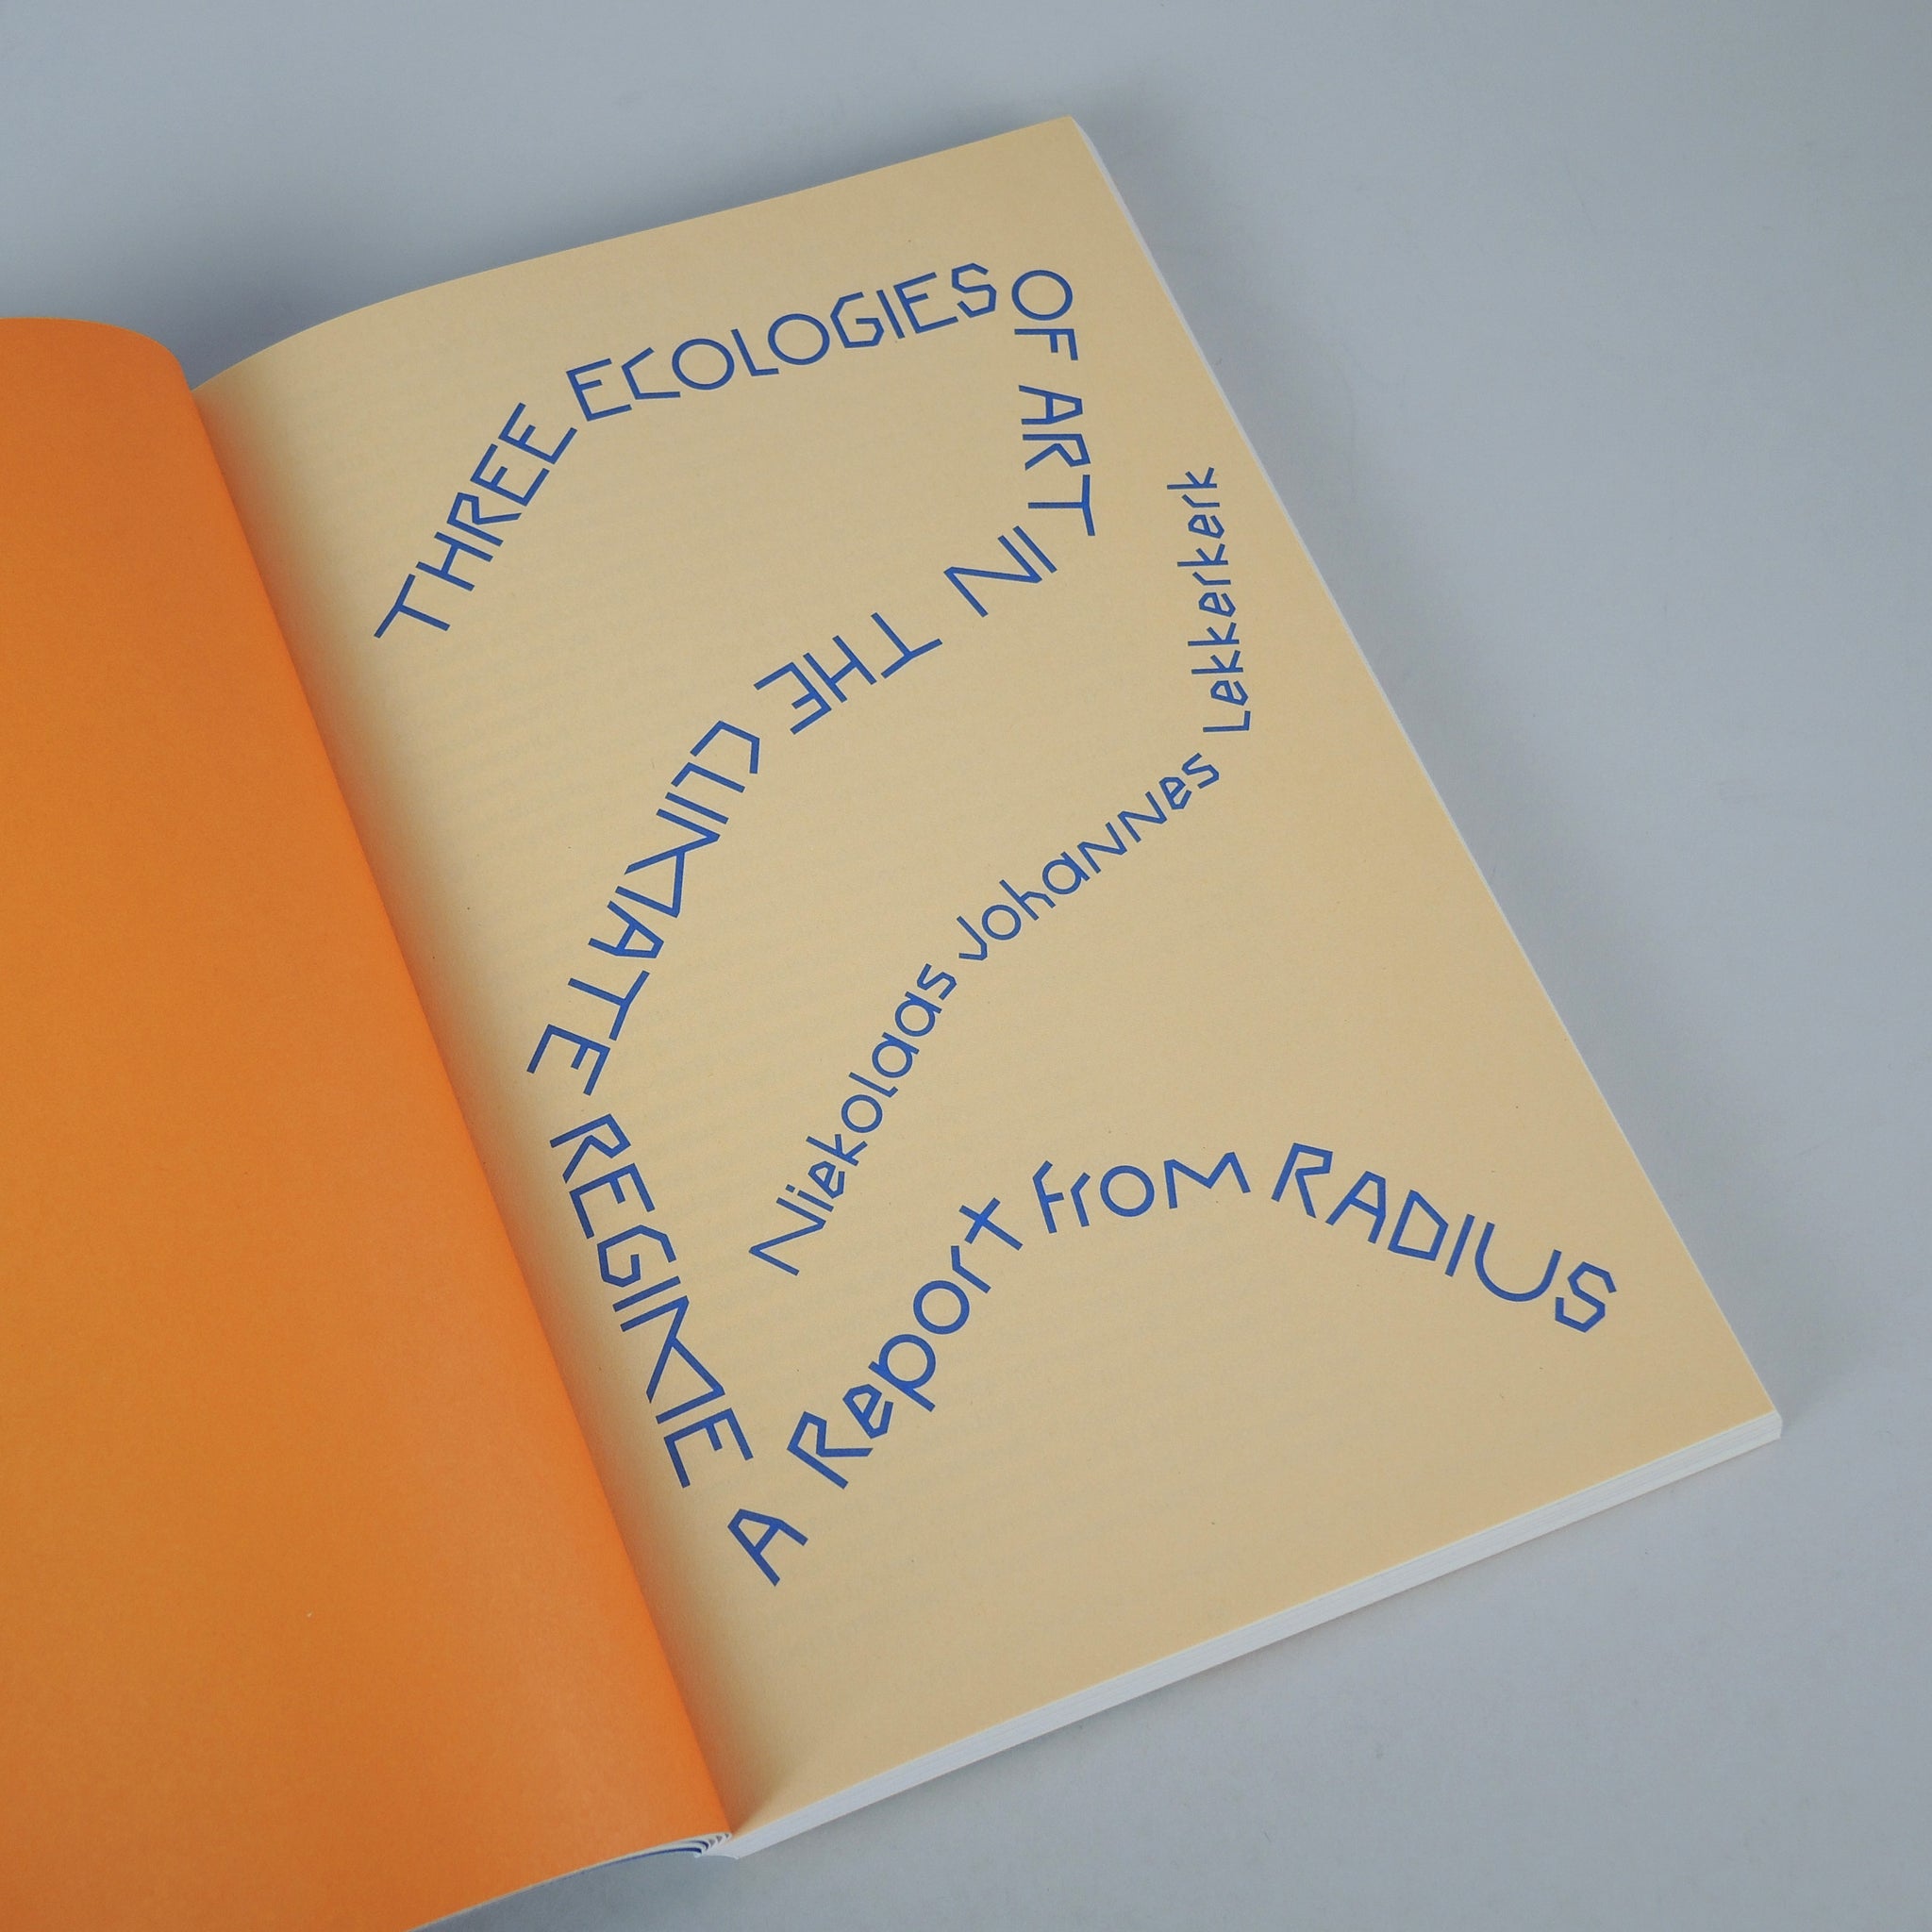 THREE ECOLOGIES OF ART IN THE CLIMATE REGIME
Niekolaas Johannes Lekkerkerk
A Report from RADIUS